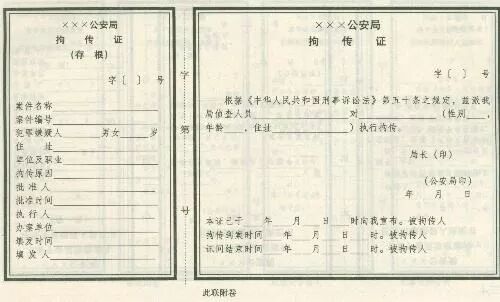 ×××公安局
拘 传 证
(存 根)
字〔 〕 号
案件名称
案件编号
犯罪嫌疑人 男女 岁
住 址
单位及职业
拘传原因
批 准 人
批准时间
执 行 人
办案单位
填发时间
填 发 人
字
第
号
×××公安局
拘 传 证
字〔 〕 号
根据《中华人民共和国刑事诉讼法》第五十条之规定,兹派我
局侦查人员 对 (性别 ,
年龄 ,住址 )执行拘传。
局长(印)
(公安局印)
年 月 日
本证已于 年 月 日 时向我宣布。被拘传人
拘传到案时间 年 月 日 时。被拘传人
讯问结束时间 年 月 日 时。被拘传人
此联附卷